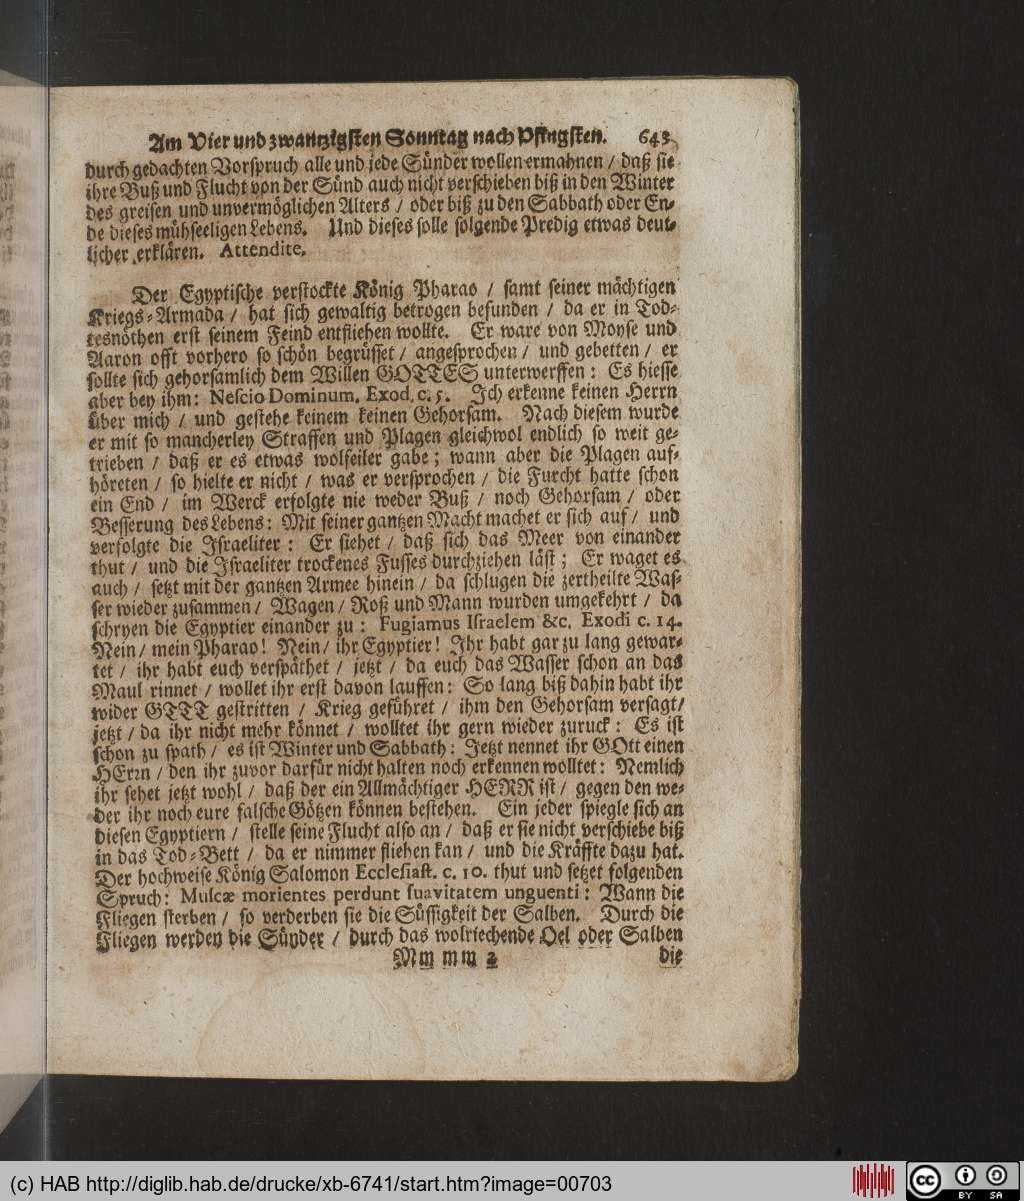 Am Vier und zwantzigsten Sonntag nach Pfingsten. 643
durch gedachten Vorspruch alle und jede Sünder wollen ermahnen / daß sie
ihre Buß und Flucht von der Sünd auch nicht verschieben biß in den Winter
des greisen und unvermöglichen Alters / oder biß zu den Sabbath oder En-
de dieses mühseeligen Lebens. Und dieses solle folgende Predig etwas deut-
licher erklären. Attendite.
Der Egyptische verstockte König Pharao / samt seiner mächtigen
Kriegs-Armada / hat sich gewaltig betrogen befunden / da er in Tod-
tesnöthen erst seinem Feind entfliehen wollte. Er ware von Moyse und
Aaron offt vorhero so schön begrüsset / angesprochen / und gebetten / er
sollte sich gehorsamlich dem Willen GOTTES unterwerffen: Es hiesse
aber bey ihm: Nescio Dominum. Exod. c. 5. Ich erkenne keinen Herrn
über mich / und gestehe keinem keinen Gehorsam. Nach diesem wurde
er mit so mancherley Straffen und Plagen gleichwol endlich so weit ge-
trieben / daß er es etwas wolfeiler gabe; wann aber die Plagen auf-
höreten / so hielte er nicht / was er versprochen / die Furcht hatte schon
ein End / im Werck erfolgte nie weder Buß / noch Gehorsam / oder
Besserung des Lebens: Mit seiner gantzen Macht machet er sich auf / und
verfolgte die Israeliter: Er siehet / daß sich das Meer von einander
thut / und die Israeliter trockenes Fusses durchziehen läst; Er waget es
auch / setzt mit der gantzen Armee hinein / da schlugen die zertheilte Was-
ser wieder zusammen / Wagen / Roß und Mann wurden umgekehrt / da
schryen die Egyptier einander zu: Fugiamus Israelem &c. Exodi c. 14.
Nein / mein Pharao! Nein / ihr Egyptier! Ihr habt gar zu lang gewar-
tet / ihr habt euch verspäthet / jetzt / da euch das Wasser schon an das
Maul rinnet / wollet ihr erst davon lauffen: So lang biß dahin habt ihr
wider GOTT gestritten / Krieg geführet / ihm den Gehorsam versagt /
jetzt / da ihr nicht mehr könnet / wolltet ihr gern wieder zuruck: Es ist
schon zu spath / es ist Winter und Sabbath: Jetzt nennet ihr GOtt einen
HErrn / den ihr zuvor darfür nicht halten noch erkennen wolltet: Nemlich
ihr sehet jetzt wohl / daß der ein Allmächtiger HERR ist / gegen den we-
der ihr noch eure falsche Götzen können bestehen. Ein jeder spiegle sich an
diesen Egyptiern / stelle seine Flucht also an / daß er sie nicht verschiebe biß
in das Tod-Bett / da er nimmer fliehen kan / und die Kräffte dazu hat.
Der hochweise König Salomon Ecclesiast. c. 10. thut und setzet folgenden
Spruch: Muscæ morientes perdunt suavitatem unguenti: Wann die
Fliegen sterben / so verderben sie die Süssigkeit der Salben. Durch die
Fliegen werden die Sünder / durch das wolriechende Oel oder Salben
Mm mm 2 die
(c) HAB http://diglib.hab.de/drucke/xb-6741/start.htm?image=00703
cc BY SA